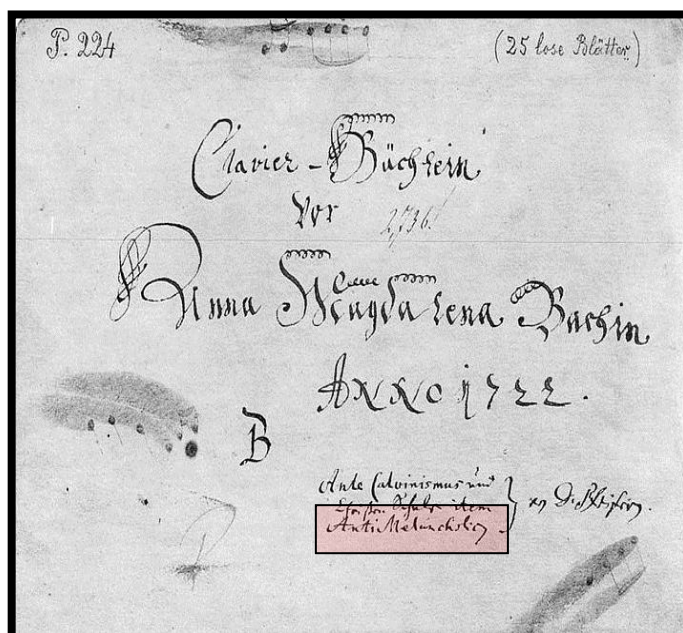 P. 224
(25 lose Blätter)
Clavier-Büchlein
vor
Anna Magdalena Bachin
ANNO 1722.
B
Ante Calvinismus und
Schule item
AntiMelancholicus